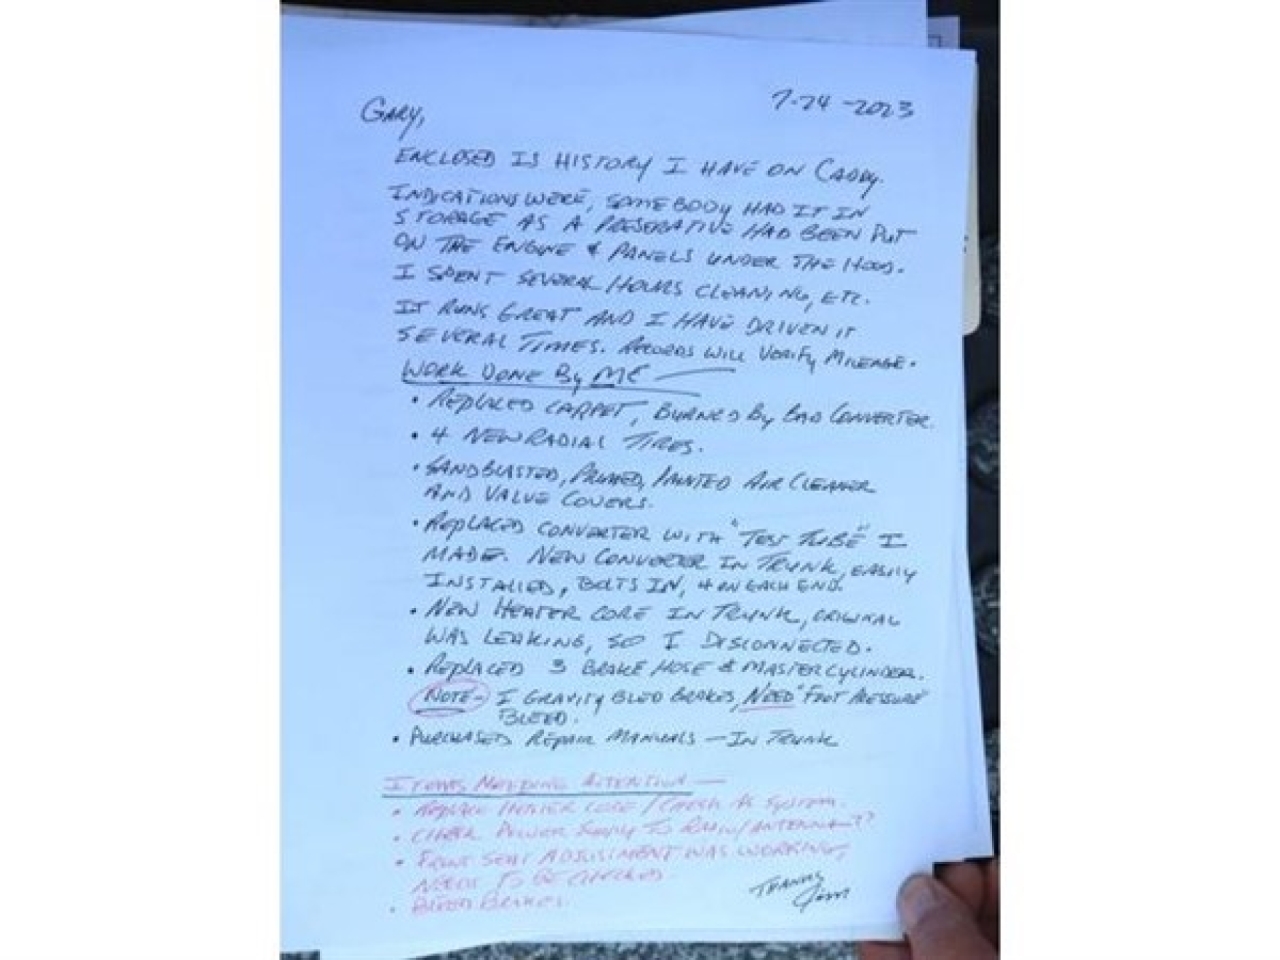 7-24-2023
GARY,
ENCLOSED IS HISTORY I HAVE ON CADDY.
INDICATIONS WERE, SOMEBODY HAD IT IN
STORAGE AS A PRESERATIVE HAD BEEN PUT
ON THE ENGINE & PANELS UNDER THE HOOD.
I SPENT SEVERAL HOURS CLEANING, ETC.
IT RUNS GREAT AND I HAVE DRIVEN IT
SEVERAL TIMES. RECORDS WILL VERIFY MILEAGE.
WORK DONE BY ME —
• REPLACED CARPET, BURNED BY BAD CONVERTER.
• 4 NEW RADIAL TIRES.
• SANDBLASTED, PRIMED, PAINTED AIR CLEANER
AND VALUE COVERS.
• REPLACED CONVERTER WITH "TEST TUBE" I
MADE. NEW CONVERTER IN TRUNK, EASILY
INSTALLED, BOLTS IN, 4 ON EACH END.
• NEW HEATER CORE IN TRUNK, ORIGINAL
WAS LEAKING, SO I DISCONNECTED.
• REPLACED 3 BRAKE HOSE & MASTER CYLINDER.
NOTE- I GRAVITY BLED BRAKES, NEED "FOOT PRESSURE"
BLEED.
• PURCHASED REPAIR MANUALS — IN TRUNK
ITEMS NEEDING ATTENTION —
• REPLACE HEATER CORE/CHECK AC SYSTEM.
• CHECK POWER SUPPLY TO RADIO/ANTENNA??
• FRONT SEAT ADJUSTMENT WAS WORKING,
NEEDS TO BE CHECKED.
• BLEED BRAKES.
THANKS
Jim